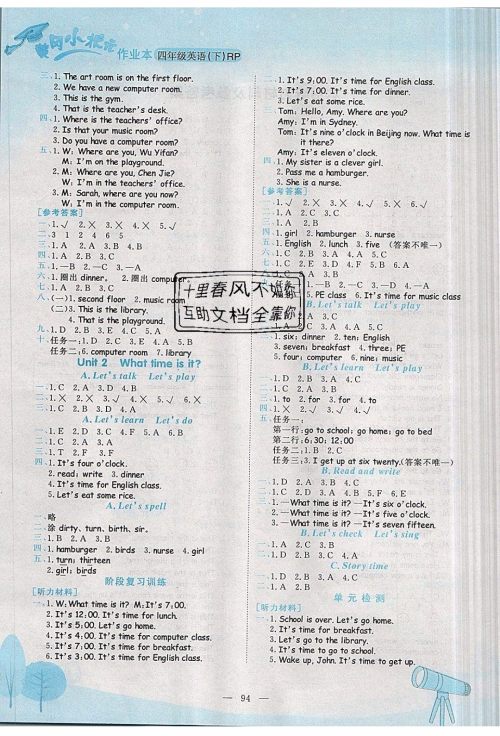 黄冈小状元 作业本 四年级英语(下)RP
三、1. The art room is on the first floor.
2. We have a new computer room.
3. This is the gym.
4. That is the teacher's desk.
四、1. Where is the teachers' office?
2. Is that your music room?
3. Do you have a computer room?
五、1. W: Where are you, Wu Yifan?
M: I'm on the playground.
2. M: Where are you, Chen Jie?
W: I'm in the teachers' office.
3. M: Sarah, where are you now?
W: I'm in the computer room.
[参考答案]
一、1. √ 2. × 3. × 4. √ 5. √
二、3 1 2 4 6 5
三、1. A 2. A 3. B 4. B
四、1. A 2. B 3. C
五、1. —B 2. —C 3. —A
六、1. 圈出 dinner. 2. 圈出 computer.
七、1. A 2. B 3. C
八、(一)1. second floor 2. music room
(二)3. This is the library.
4. That is the playground.
九、1. D 2. B 3. E 4. C 5. A
十、任务一:1. D 2. C 3. E 4. A 5. B
任务二:6. computer room 7. library
Unit 2 What time is it?
A. Let's talk Let's play
一、1. C 2. A 3. D 4. B
二、1. × 2. × 3. √ 4. × 5. √ 6. ×
三、1. C 2. B 3. D 4. A
A. Let's learn Let's do
一、1. E 2. D 3. C 4. F 5. A 6. B
二、1. C 2. A 3. A
三、1. T 2. F 3. F
四、1. It's four o'clock.
2. read; write 3. dinner
4. It's time for English class.
5. Let's eat some rice.
A. Let's spell
一、略
二、涂 dirty、turn、birth、sir。
三、1. B 2. A 3. B
四、1. hamburger 2. birds 3. nurse 4. girl
五、1. turn; thirteen
2. girl; birds
阶段复习训练
[听力材料]
一、1. W: What time is it? M: It's 7:00.
2. It's 12:00. It's time for lunch.
3. It's 5:00. Let's go home.
4. It's 4:00. It's time for computer class.
5. It's 7:00. It's time for breakfast.
6. It's 3:00. It's time for English class.
二、1. It's 9:00. It's time for English class.
2. It's 7:00. It's time for dinner.
3. Let's eat some rice.
三、Tom: Hello, Amy. Where are you?
Amy: I'm in Sydney.
Tom: It's nine o'clock in Beijing now. What time is
it there?
Amy: It's eleven o'clock.
四、1. My sister is a clever girl.
2. Pass me a hamburger.
3. She is a nurse.
[参考答案]
1. A 2. C 3. C
四、1. girl 2. hamburger 3. nurse
五、1. English 2. lunch 3. five (答案不唯一)
六、1. C 2. B 3. A 4. A 5. C
七、1. C 2. E 3. D 4. F 5. B 6. A
5. PE class 6. It's time for music class
B. Let's talk Let's play
十里春风不如你
互助文档全靠你
一、1. six; dinner 2. ten; English
3. seven; breakfast 4. three; PE
5. four; computer 6. nine; music
B. Let's learn Let's play
一、1. D 2. B 3. A 4. C
二、1. A 2. C 3. B
三、1. to 2. for 3. for 4. to
四、1. × 2. √ 3. √ 4. √
五、任务一:
第一行:go to school; go home; go to bed
第二行:6:30; 12:00
任务二:1. B 2. C
任务三:3. I get up at six twenty.(答案不唯一)
B. Read and write
一、1. D 2. A 3. B 4. C
二、1. C 2. D 3. A 4. B 5. F 6. E
三、1. —What time is it? —It's six o'clock.
2. —What time is it? —It's five o'clock.
3. —What time is it? —It's seven fifteen.
B. Let's check Let's sing
一、1. A 2. C 3. B
二、1. D 2. B 3. C 4. A
C. Story time
一、1. D 2. B 3. A 4. C
二、1. A 2. B
单元检测
[听力材料]
一、1. School is over. Let's go home.
2. It's time for breakfast.
3. Let's go to the library.
4. It's time to go to school.
5. Wake up, John. It's time to get up.
— 94 —